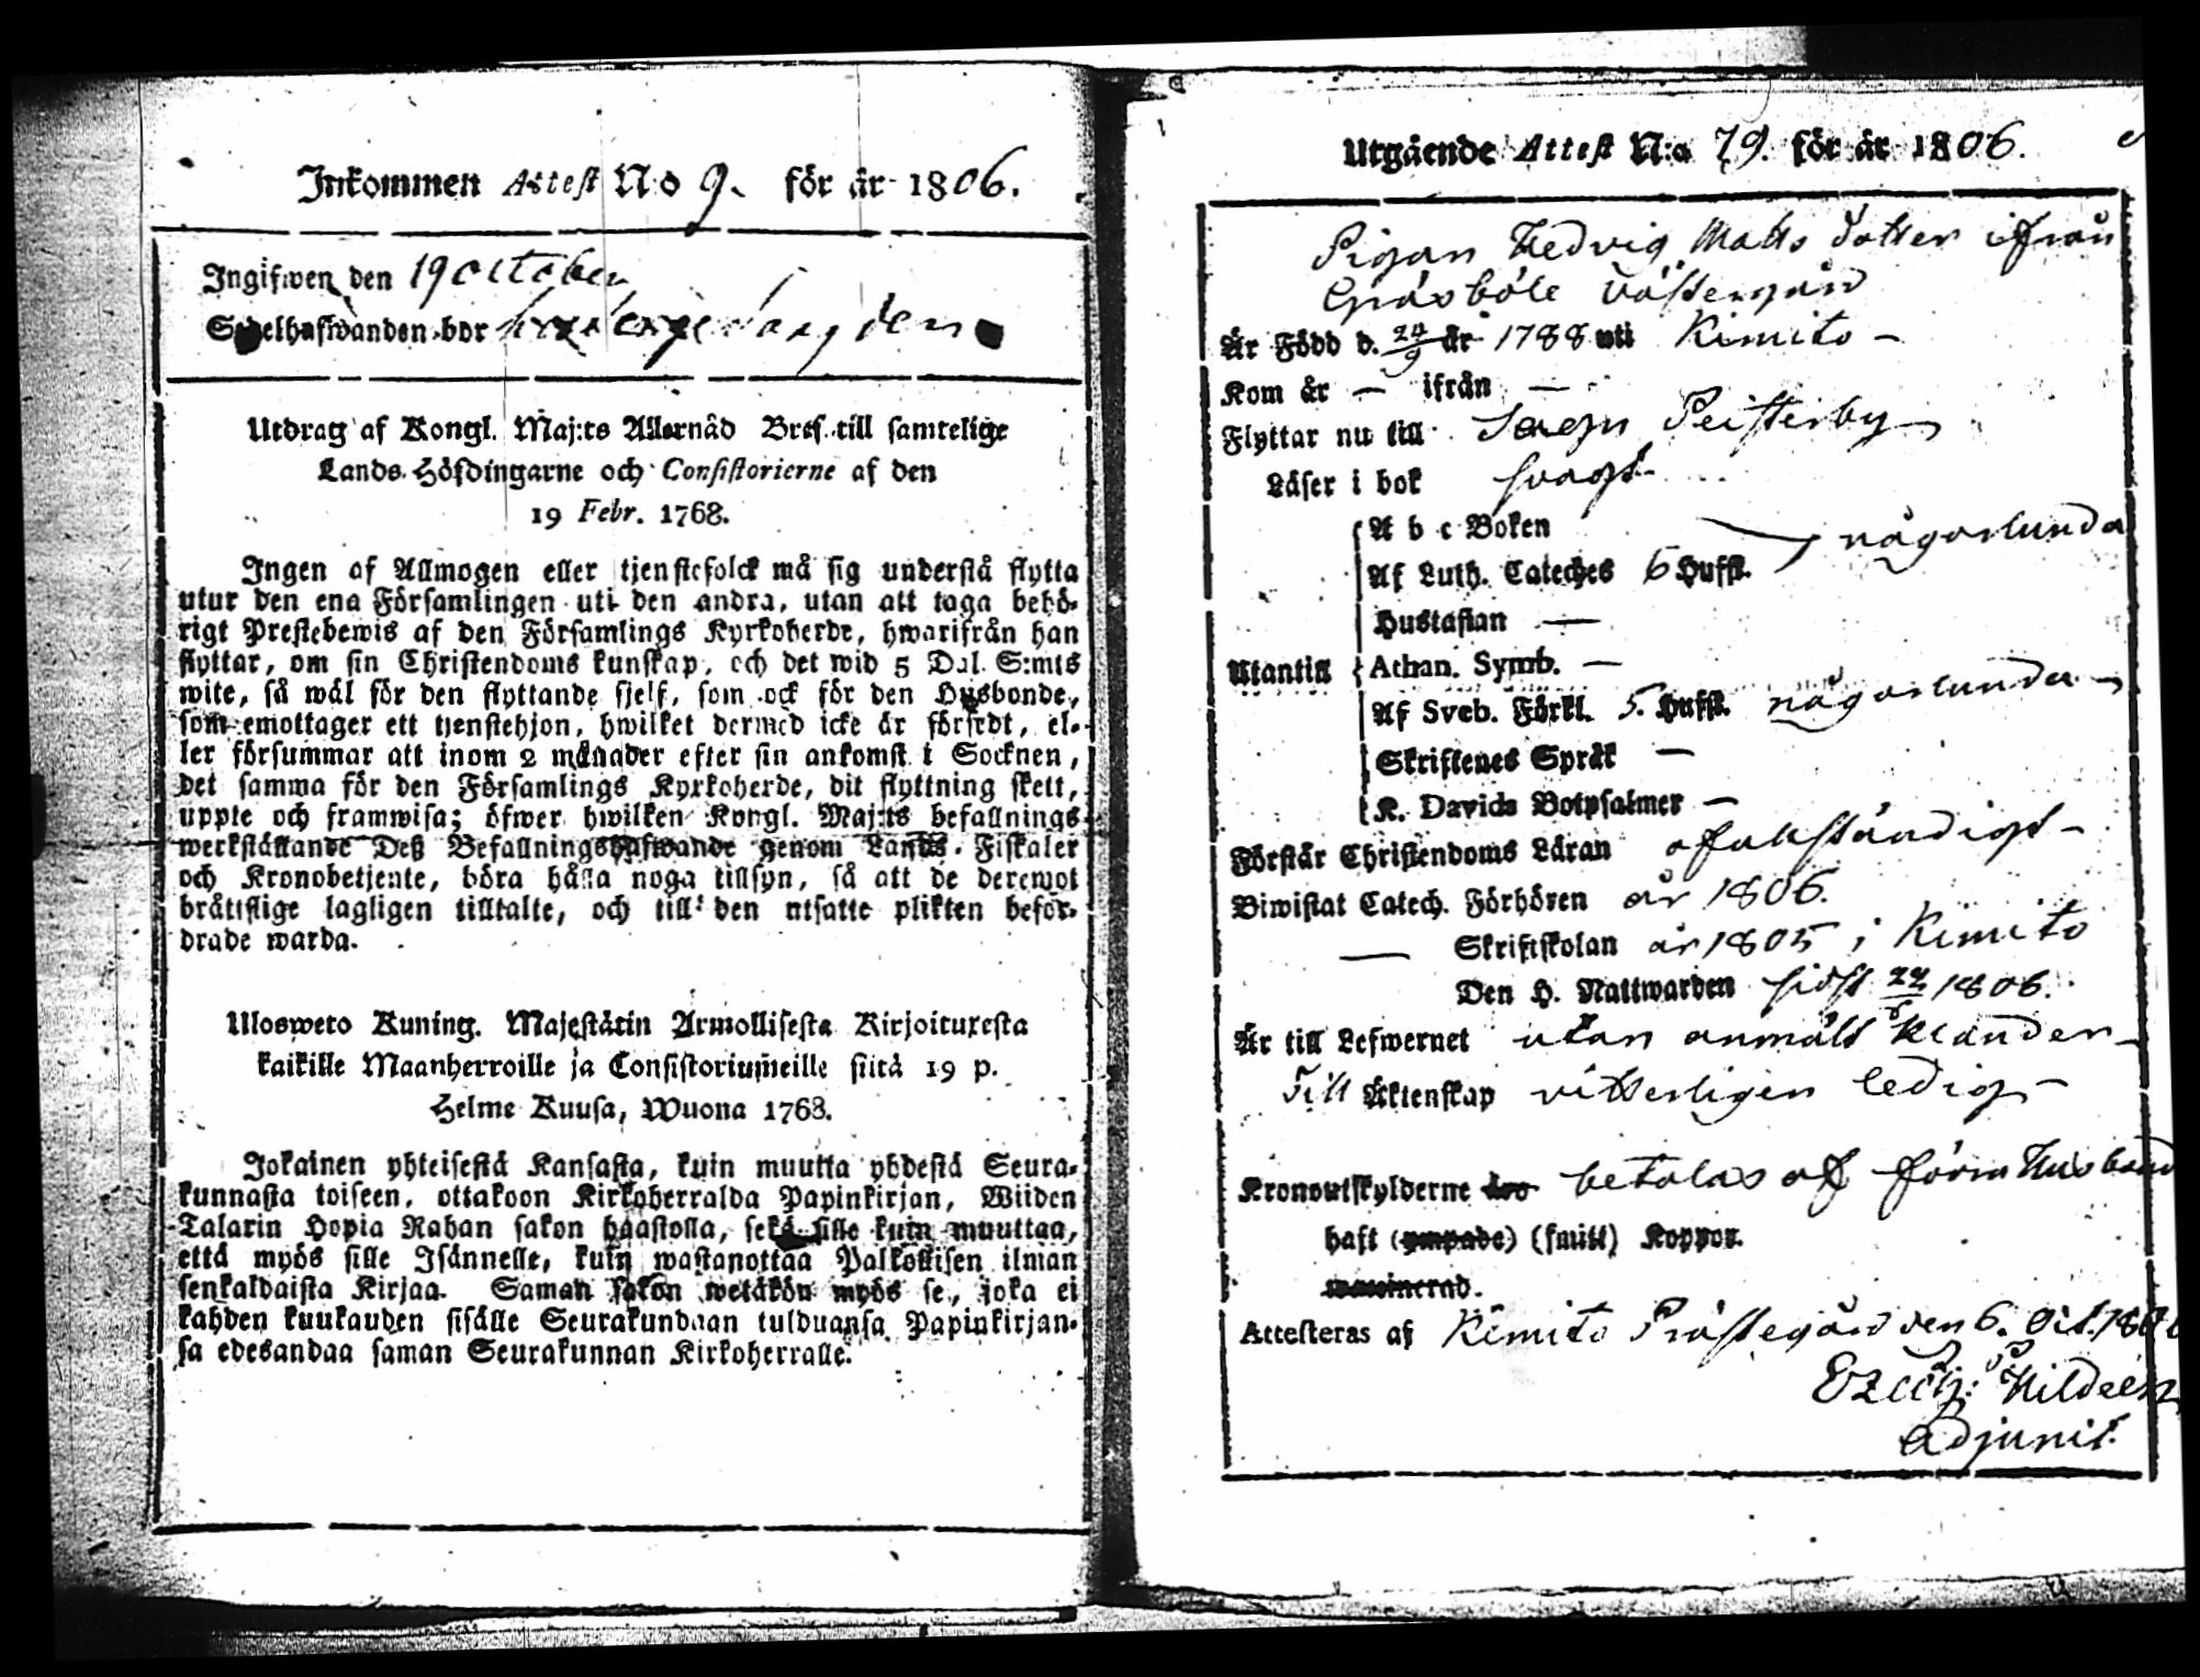 Inkommen Attest N:o 9. för år 1806.
Ingifwen den 19 October
Sedelhafwanden bor
Utdrag af Kongl. Maj:ts Allernåd Bref till samtelige
Lands-Höfdingarne och Consistorierne af den
19 Febr. 1768.
Ingen af Allmogen eller tjenstefolck må sig understå flytta
utur den ena Församlingen uti den andra, utan att taga behö-
rigt Prestebewis af den Församlings Kyrkoherde, hwarifrån han
flyttar, om sin Christendoms kunskap, och det wid 5 Dal. S:mts
wite, så wäl för den flyttande sjelf, som ock för den Husbonde,
som emottager ett tjenstehjon, hwilket dermed icke är försedt, el-
ler försummar att inom 2 månader efter sin ankomst i Socknen,
det samma för den Församlings Kyrkoherde, dit flyttning skett,
uppte och framwisa; öfwer hwilken Kongl. Maj:ts befallnings
werkställande Deß Befallningshafwande genom Lands-Fiskaler
och Kronobetjente, böra hålla noga tillsyn, så att de deremot
bråttslige lagligen tilltalte, och till den utsatte plikten befor-
drade warda.
Ulosweto Kuning. Majestätin Armollisesta Kirjoituxesta
kaikille Maanherroille ja Consistoriumeille siitä 19 p.
Helme Kuusa, Wuona 1768.
Jokainen yhteisestä Kansasta, kuin muutta yhdestä Seura-
kunnasta toiseen, ottakoon Kirkoherralda Papinkirjan, Wiiden
Talarin Hopia Rahan sakon haastolla, sekä sille kuin muuttaa,
että myös sille Isännelle, kuin wastanottaa Palkollisen ilman
senkaldaista Kirjaa. Saman sakon wetäkön myös se, joka ei
kahden kuukauden sisälle Seurakundaan tulduansa Papinkirjan-
sa edesandaa saman Seurakunnan Kirkoherralle.
Utgående Attest N:o 79. för år 1806.
Pigan Hedvig Matts dotter ifrån
Gräsböle Västergård
Är Född d. 24/9 år 1788 uti Kimito -
Kom år - ifrån -
Flyttar nu till Sagu Peisterby
Läser i bok svagt
A b c Boken
Af Luth. Cateches 6 Hufst. någorlunda
Hustaflan -
Utantill Athan. Symb. -
Af Sveb. Förkl. 5. Hufst. någorlunda -
Skriftenes Språk -
K. Davids Botpsalmer -
Förstår Christendoms Läran ofulständigt -
Biwistat Catech. Förhören år 1806.
- Skriftskolan år 1805 i Kimito
Den H. Nattwarden sidst 1806.
Är till Lefwernet utan anmält klander -
Till Äktenskap vitterligen ledig -
Kronoutskylderne äro betalas af förra Husbond
haft (ympade) (smitt) Koppor.
Attesteras af Kimito Prästegård den 6. Oct. 1806
Ezech: Hildeen
Adjunct.